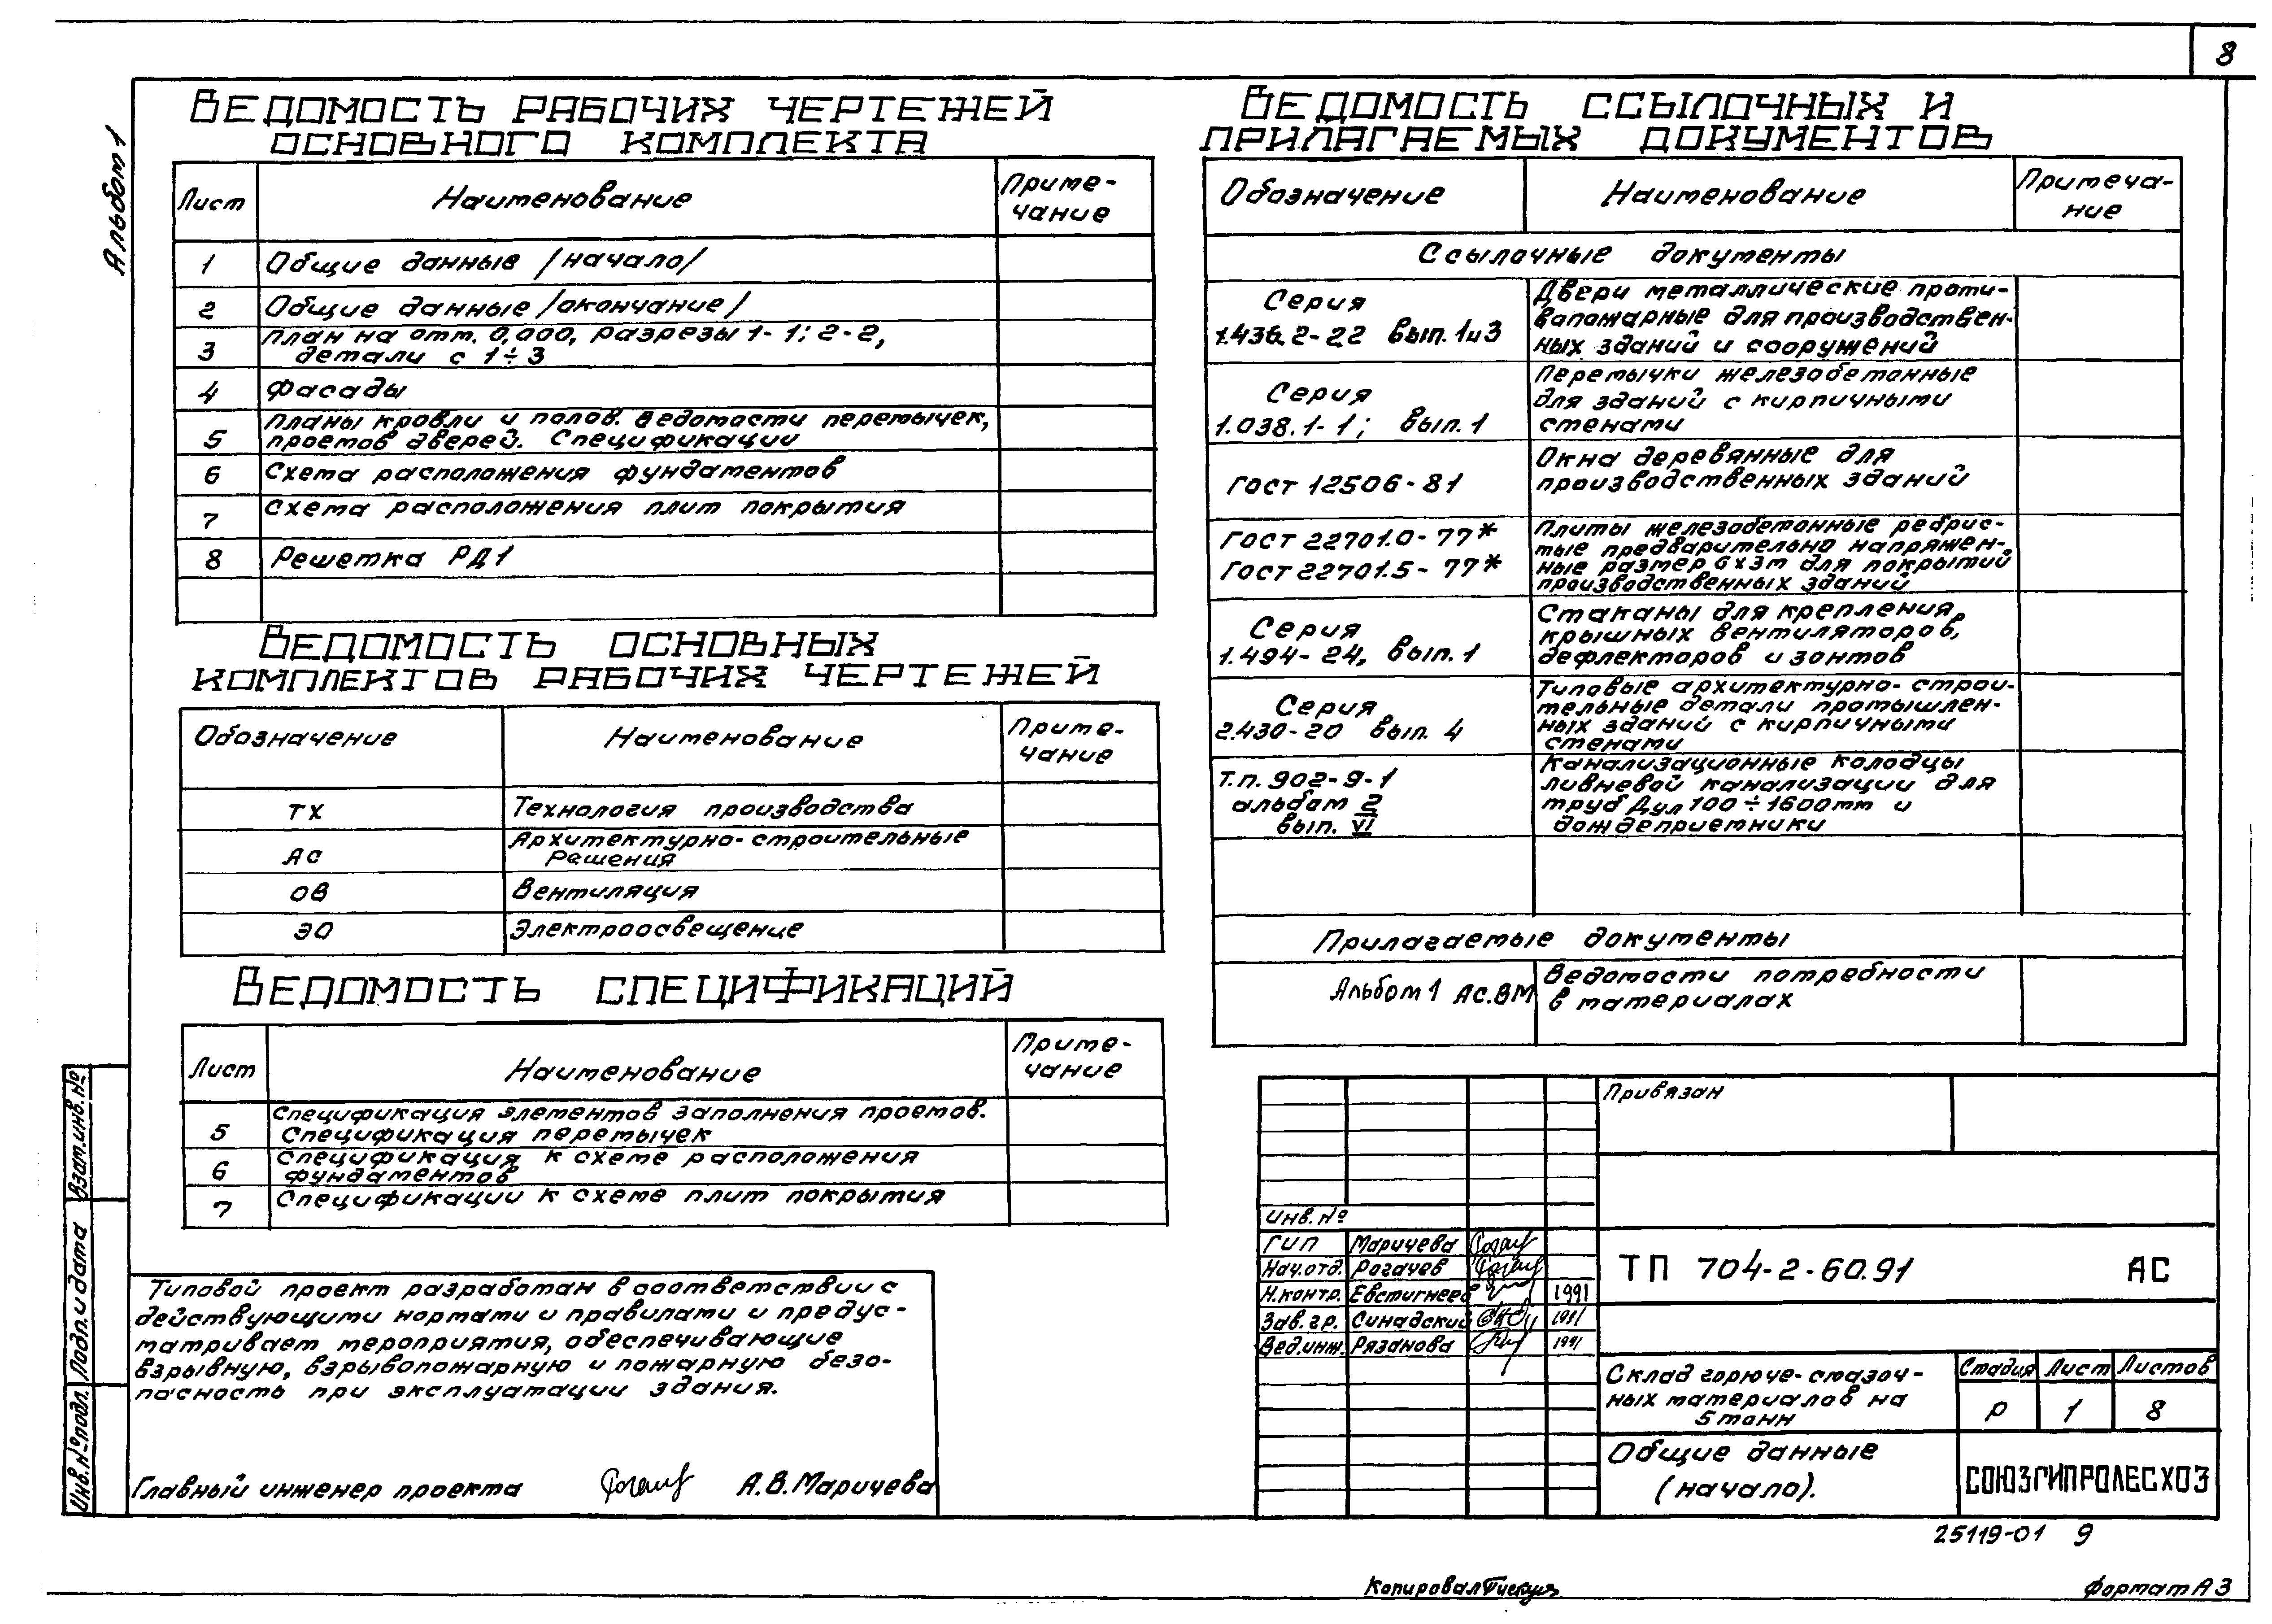 8
Альбом 1
Ведомость рабочих чертежей
основного комплекта
Лист Наименование Приме-
чание
1 Общие данные /начало/
2 Общие данные /окончание/
3 План на отм. 0,000, разрезы 1-1; 2-2,
детали с 1÷3
4 Фасады
5 Планы кровли и полов. Ведомости перемычек,
проемов дверей. Спецификации
6 Схема расположения фундаментов
7 Схема расположения плит покрытия
8 Решетка РД1
Ведомость основных
комплектов рабочих чертежей
Обозначение Наименование Приме-
чание
ТХ Технология производства
АС Архитектурно-строительные
решения
ОВ Вентиляция
ЭО Электроосвещение
Ведомость спецификаций
Лист Наименование Приме-
чание
5 Спецификация элементов заполнения проемов.
Спецификация перемычек
6 Спецификация к схеме расположения
фундаментов
7 Спецификации к схеме плит покрытия
Типовой проект разработан в соответствии с
действующими нормами и правилами и предус-
матривает мероприятия, обеспечивающие
взрывную, взрывопожарную и пожарную безо-
пасность при эксплуатации здания.
Главный инженер проекта А.В.Маричева
Взам.инв.№
Подп.и дата
Инв.№подл.
Ведомость ссылочных и
прилагаемых документов
Обозначение Наименование Примеча-
ние
Ссылочные документы
Серия
1.436.2-22 вып. 1и3
Двери металлические проти-
вопожарные для производствен-
ных зданий и сооружений
Серия
1.038.1-1; вып. 1
Перемычки железобетонные
для зданий с кирпичными
стенами
ГОСТ 12506-81
Окна деревянные для
производственных зданий
ГОСТ 22701.0-77*
ГОСТ 22701.5-77*
Плиты железобетонные ребрис-
тые предварительно напряжен-
ные размер 6х3м для покрытий
производственных зданий
Серия
1.494-24, вып. 1
Стаканы для крепления
крышных вентиляторов,
дефлекторов и зонтов
Серия
2.430-20 вып. 4
Типовые архитектурно-строи-
тельные детали промышлен-
ных зданий с кирпичными
стенами
Т.п. 902-9-1
альбом 2
вып. VI
Канализационные колодцы
ливневой канализации для
труб Дул 100÷1600мм и
дождеприемники
Прилагаемые документы
Альбом 1 АС.ВМ Ведомости потребности
в материалах
Привязан
Инв.№
ГИП Маричева
Нач.отд. Рогачев
Н.контр. Евстигнеев 1991
Зав.гр. Синадский 1991
Вед.инж. Рязанова 1991
ТП 704-2-60.91 АС
Склад горюче-смазоч-
ных материалов на
5 тонн
Стадия Лист Листов
Р 1 8
Общие данные
(начало).
СОЮЗГИПРОЛЕСХОЗ
25119-01 9
Копировал
Формат А3